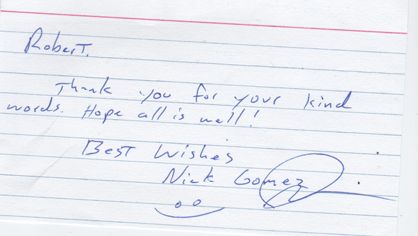 Robert.
Thank you for your kind
words. Hope all is well!
Best Wishes
Nick Gomez